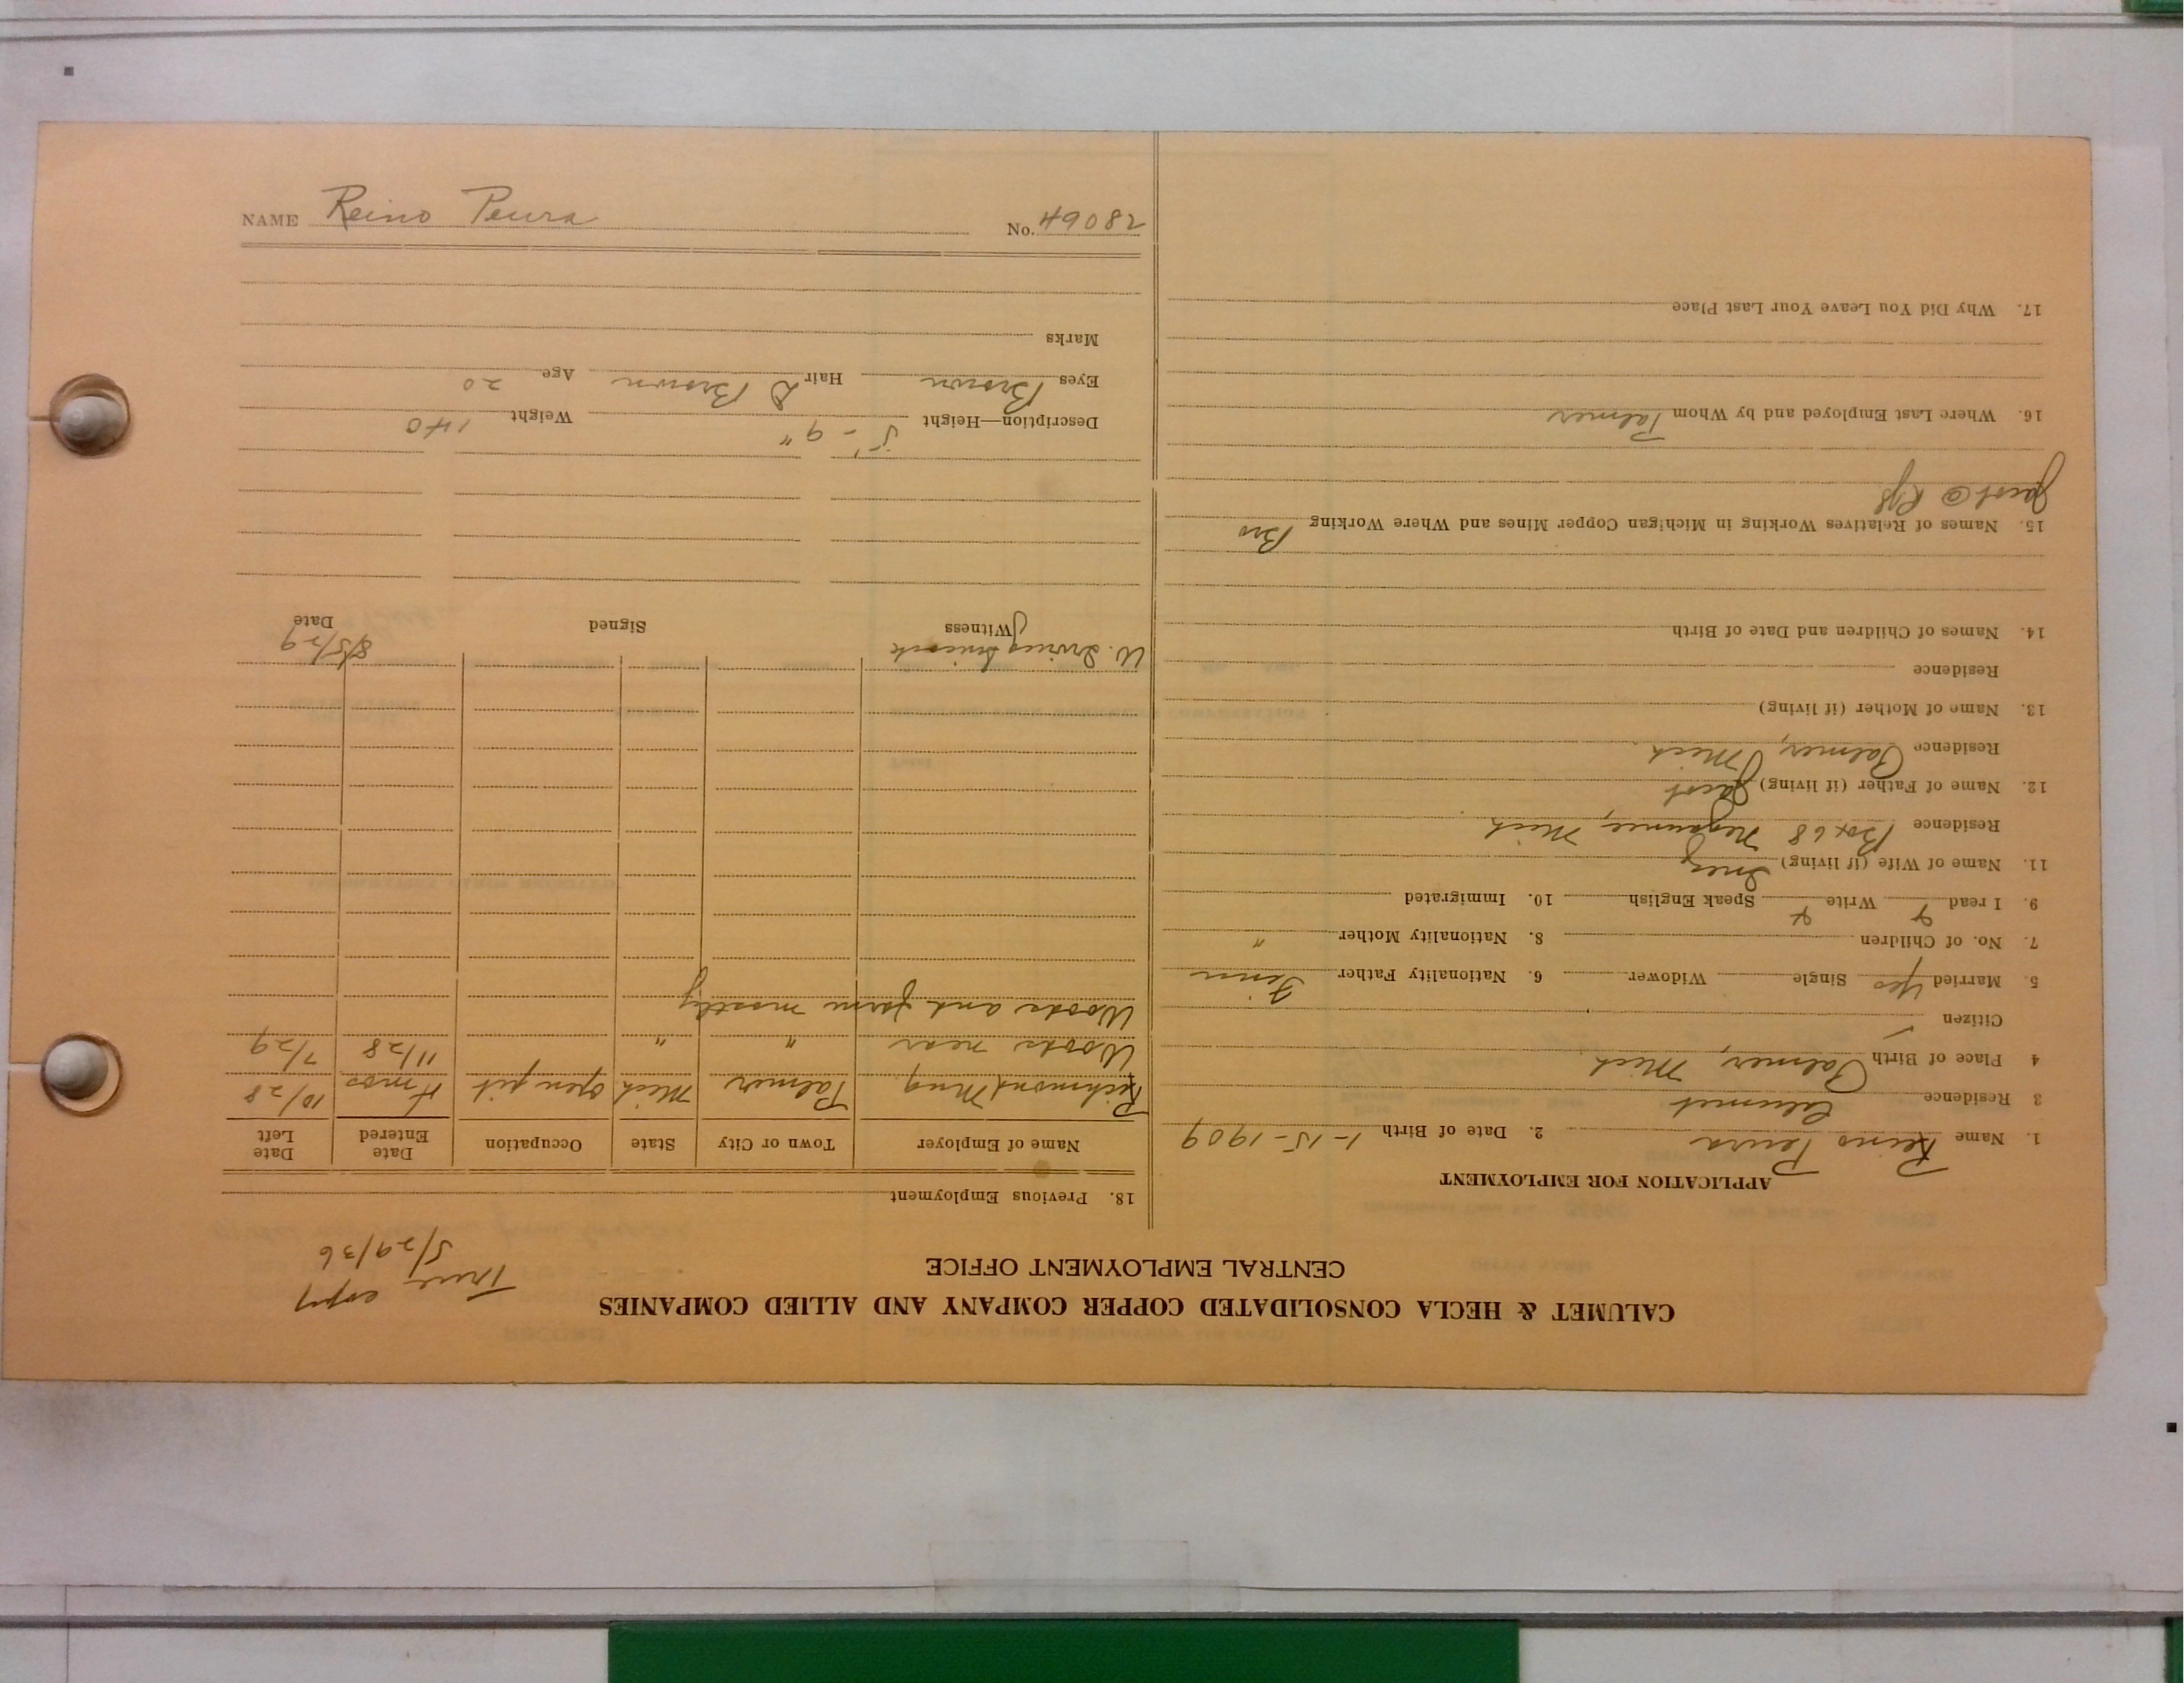 True copy
5/29/36
CALUMET & HECLA CONSOLIDATED COPPER COMPANY AND ALLIED COMPANIES
CENTRAL EMPLOYMENT OFFICE
APPLICATION FOR EMPLOYMENT
1. Name Reino Peura 2. Date of Birth 1-15-1909
3 Residence Calumet
4 Place of Birth Palmer, Mich
Citizen ✓
5. Married Yes Single Widower 6. Nationality Father Finn
7. No. of Children 8. Nationality Mother "
9. I read Write Speak English 10. Immigrated
11. Name of Wife (if living) Inez
Residence Box 68 Negaunee, Mich
12. Name of Father (if living) Jacob
Residence Palmer, Mich
13. Name of Mother (if living)
Residence
14. Names of Children and Date of Birth
15. Names of Relatives Working in Michigan Copper Mines and Where Working Bro
Jacob @
16. Where Last Employed and by Whom Palmer
17. Why Did You Leave Your Last Place
18. Previous Employment
Name of Employer Town or City State Occupation Date Entered Date Left
Richmond Mng. Palmer Mich open pit 4 mos 10/28
Woods near " " 11/28 7/29
Woods and farm mostly
W. Irving 8/5/29
Witness Signed Date
Description—Height 5'-9" Weight 140
Eyes Brown Hair D Brown Age 20
Marks
NAME Reino Peura No.